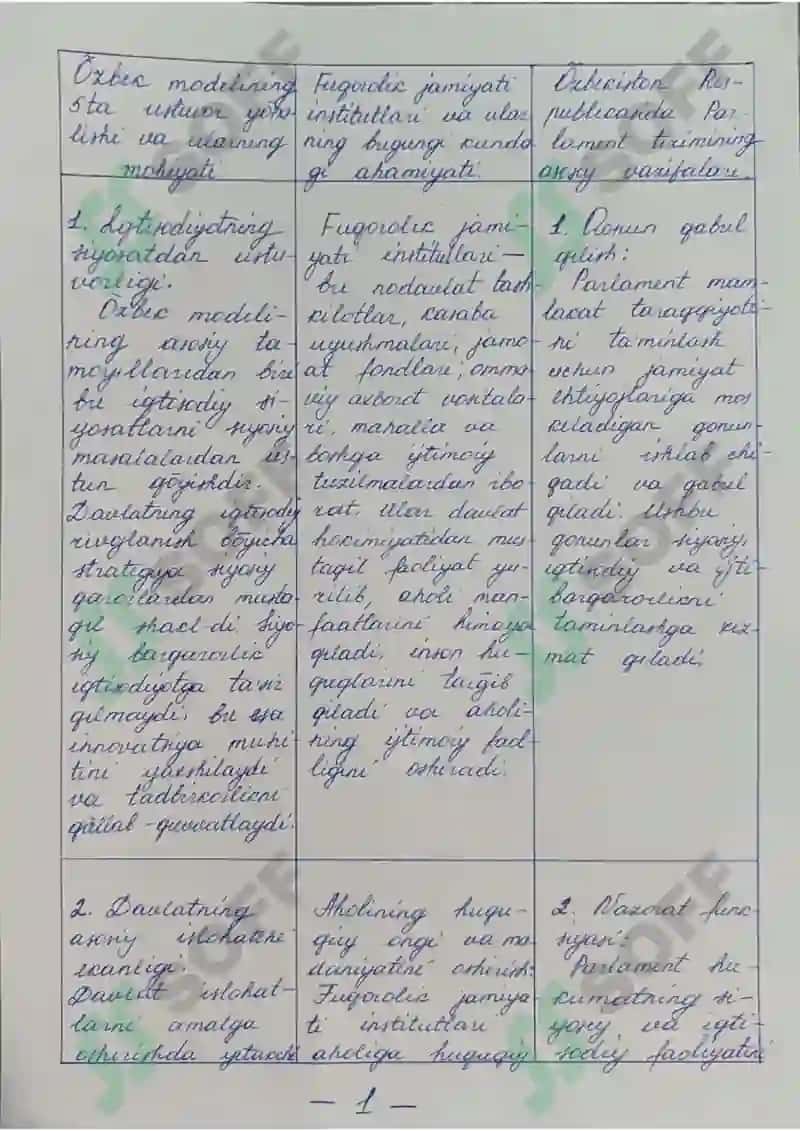 Õzbek modelining
5ta ustuvor yõna-
lishi va ularning
mohiyati
Fuqorolic jamiyati
institutlari va ular
ning bugungi kunda
gi ahamiyati.
Õzbekiston Res-
publicasida Par-
lament tizimining
asosiy vazifalari.
1. Iqtisodiyotning
siyosatdan ustu-
vorligi.
Õzbek modeli-
ning asosiy ta-
moyillaridan biri
bu iqtisodiy si-
yosatlarni siyosiy
masalalardan us-
tun qõyishdir.
Davlatning iqtisodiy
rivojlanish bõyicha
strategiya siyosiy
qarorlardan musta-
qil shacl-di. Siyo-
siy barqarorlic
iqtisodiyotga ta'sir
qilmaydi, bu esa
innovatsiya muhi-
tini yaxshilaydi
va tadbircorlicni
qõllab-quvvatlaydi.
Fuqorolic jami-
yati institutlari —
bu nodavlat tash-
cilotlar, casaba
uyushmalari, jamo-
at fondlari, omma-
viy axborot vositala-
ri, mahalla va
boshqa ijtimoiy
tuzilmalardan ibo-
rat. Ular davlat
hocimiyatidan mus-
taqil faoliyat yu-
ritib, aholi man-
faatlarini himoya
qiladi, inson hu-
quqlarini targ'ib
qiladi va aholi-
ning ijtimoiy faol-
ligini oshiradi.
1. Qonun qabul
qilish:
Parlament mam-
lacat taraqqiyoti-
ni ta'minlash
uchun jamiyat
ehtiyojlariga mos
celadigan qonun-
larni ishlab chi-
qadi va qabul
qiladi. Ushbu
qonunlar siyosiy,
iqtisodiy va ijti-
barqarorlicni
taminlashga xiz-
mat qiladi.
2. Davlatning
asosiy islohatchi
ecanligi.
Davlat islohat-
larni amalga
oshirishda yetacchi
Aholining huqu-
qiy ongi va ma-
daniyatini oshirish:
Fuqorolic jamiya-
ti institutlari
aholiga huquqiy
2. Nazorat func-
siyasi:
Parlament hu-
cumatning si-
yosiy va iqti-
sodiy faoliyatini
— 1 —
SOFF
SOFF
SOFF
SOFF
SOFF
SOFF